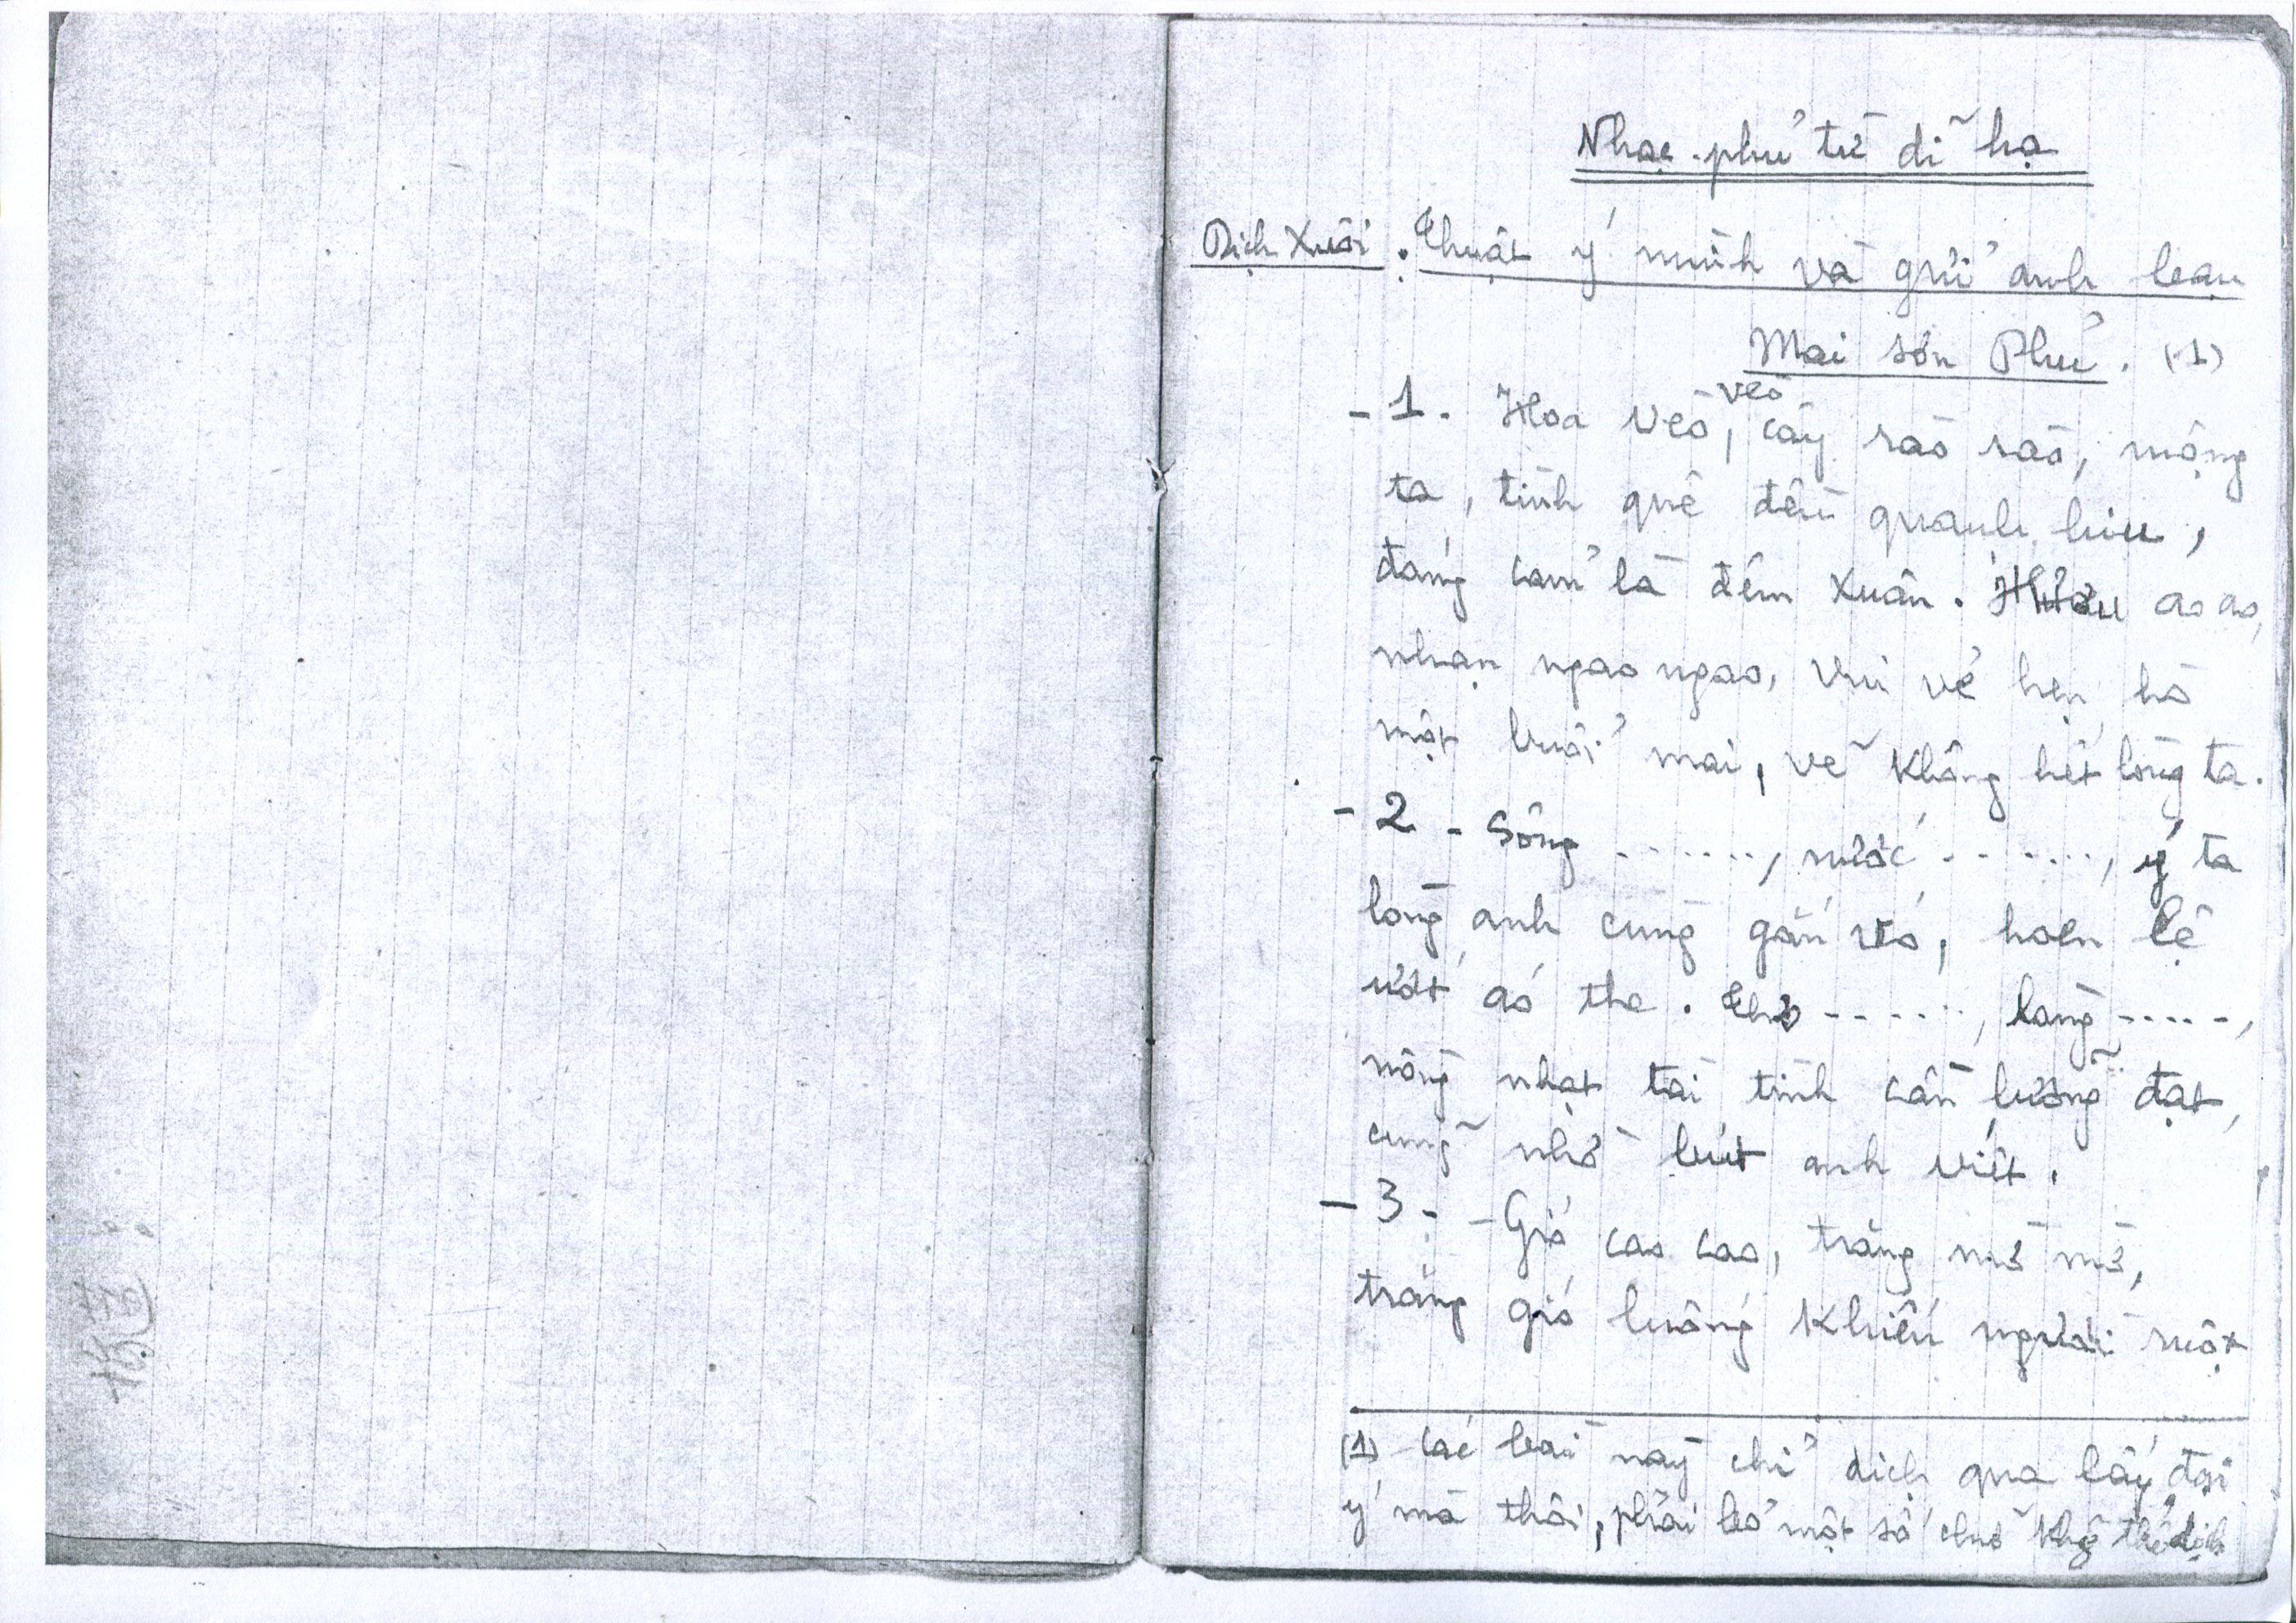 Nhạc-phủ từ dĩ hạ
Dịch Xuôi : Thuật ý mình và gửi anh bạn
Mai sơn Phủ. (1)
- 1 - Hoa vèo vèo, cây rào rào, mộng
ta, tình quê đêm quanh hiu,
đáng cảm là đêm xuân. Hươu ao ao,
nhạn ngao ngao, vui vẻ hẹn hò
một buổi mai, vẽ không hết lòng ta.
- 2 - Sông ......., nước ......., ý ta
lòng anh cùng gắn vó, hoen lệ
ướt áo the. Thơ ......., làng .....,
nồng nhạt tài tình cân lường đạt,
cũng nhờ bút anh viết.
- 3 - - Gió cao cao, trăng mờ mờ,
trăng gió luống khiến người ruột
(1) Các bài này chỉ dịch qua lấy đại
ý mà thôi, phải bỏ một số chữ khg thể dịch